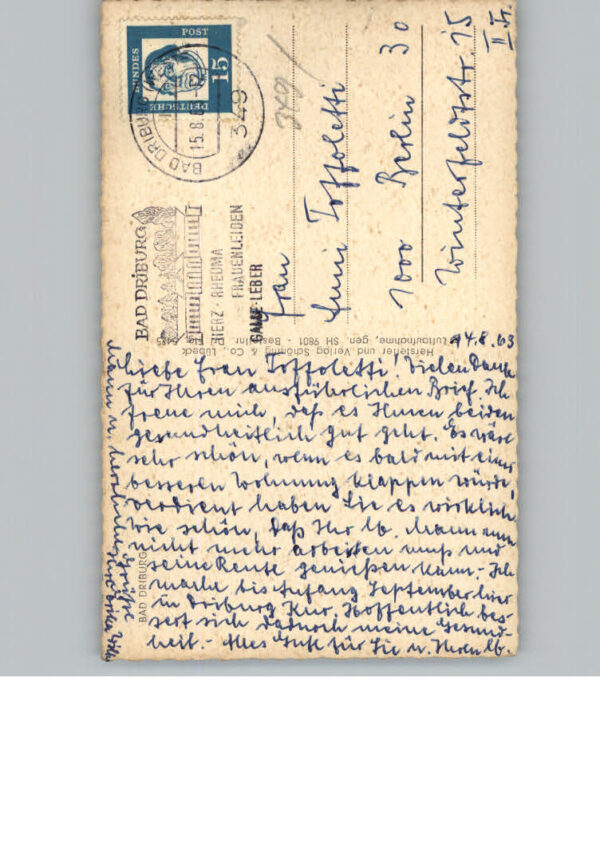 14.8.63
Liebe Frau Toffoletti! Vielen Dank
für Ihren ausführlichen Brief. Ich
freue mich, daß es Ihnen beiden
gesundheitlich gut geht. Es wäre
sehr schön, wenn es bald mit einer
besseren Wohnung klappen würde,
verdient haben Sie es wirklich.
Wie schön, daß Ihr lb. Mann nun
nicht mehr arbeiten muß und
seine Rente genießen kann. - Ich
mache bis Anfang September hier
in Driburg Kur. Hoffentlich bes-
sert sich dadurch meine Gesund-
heit. - Alles Gute für Sie u. Ihren lb.
Mann u. herzliche Grüße
BAD DRIBURG
Hersteller und Verlag Schöning & Co., Lübeck
Luftaufnahme, gen. SH 9801 - Bestell-Nr.
BAD DRIBURG
HERZ · RHEUMA
FRAUENLEIDEN
GALLE · LEBER
DEUTSCHE
BUNDES
POST
15
BAD DRIBURG
15.8.6
349
349
Frau
Toffoletti
1000 Berlin 30
Winterfeldtstr. 15
II